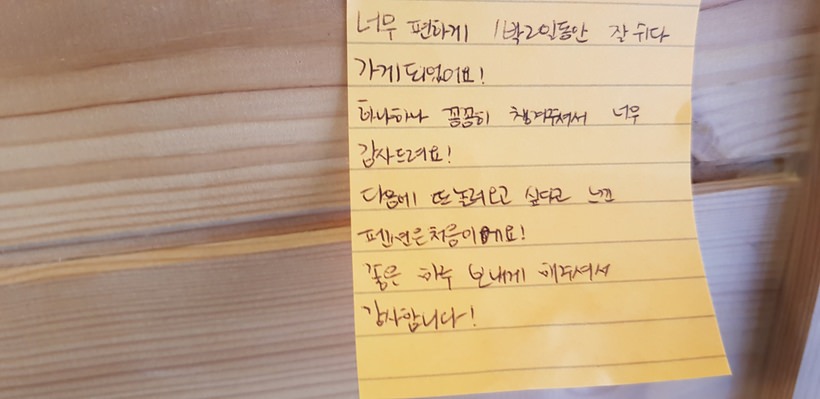 너무 편하게 1박2일동안 잘 쉬다
가게되었어요!
하나하나 꼼꼼히 챙겨주셔서 너무
감사드려요!
다음에 또 놀러오고 싶다고 느낀
펜션은 처음이에요!
좋은 하루 보내게 해주셔서
감사합니다!